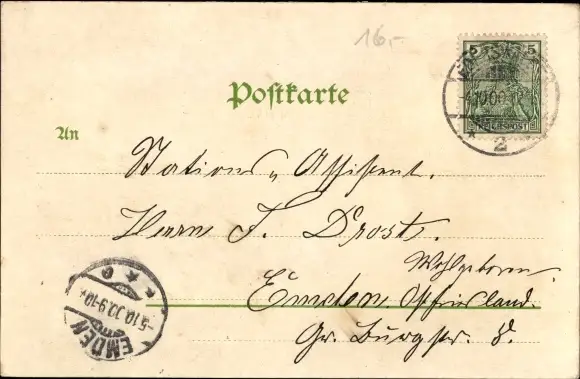 16.-
5 5
REICHSPOST
4.10.00.
2
Postkarte
An
Stations-Assistent.
Herrn F. Drost.
Wohlgeboren
Emden Ostfriesland.
Gr. Burgstr. 8.
EMDEN
-5.10.00.9-10V